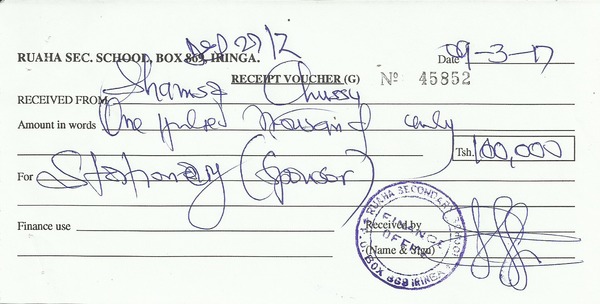 RUAHA SEC. SCHOOL, BOX 869, IRINGA.
Date 09-3-17
RECEIPT VOUCHER (G) Nº 45852
RECEIVED FROM Shamsa
Amount in words One hundred thousand only
Tsh. 100,000
For Stationary (Sponsor)
Finance use
Received by
(Name & Sign)
RUAHA SECONDARY SCHOOL
FINANCE OFFICE
P.O. BOX 869 IRINGA